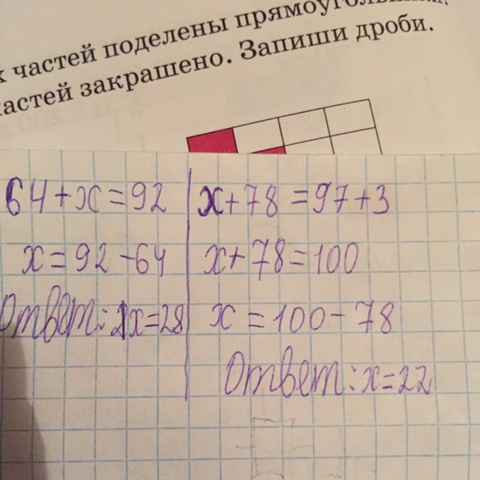 х частей поделены прямоугольник
частей закрашено. Запиши дроби.
64+x=92
x=92-64
Ответ: x=28
x+78=97+3
x+78=100
x=100-78
Ответ: x=22